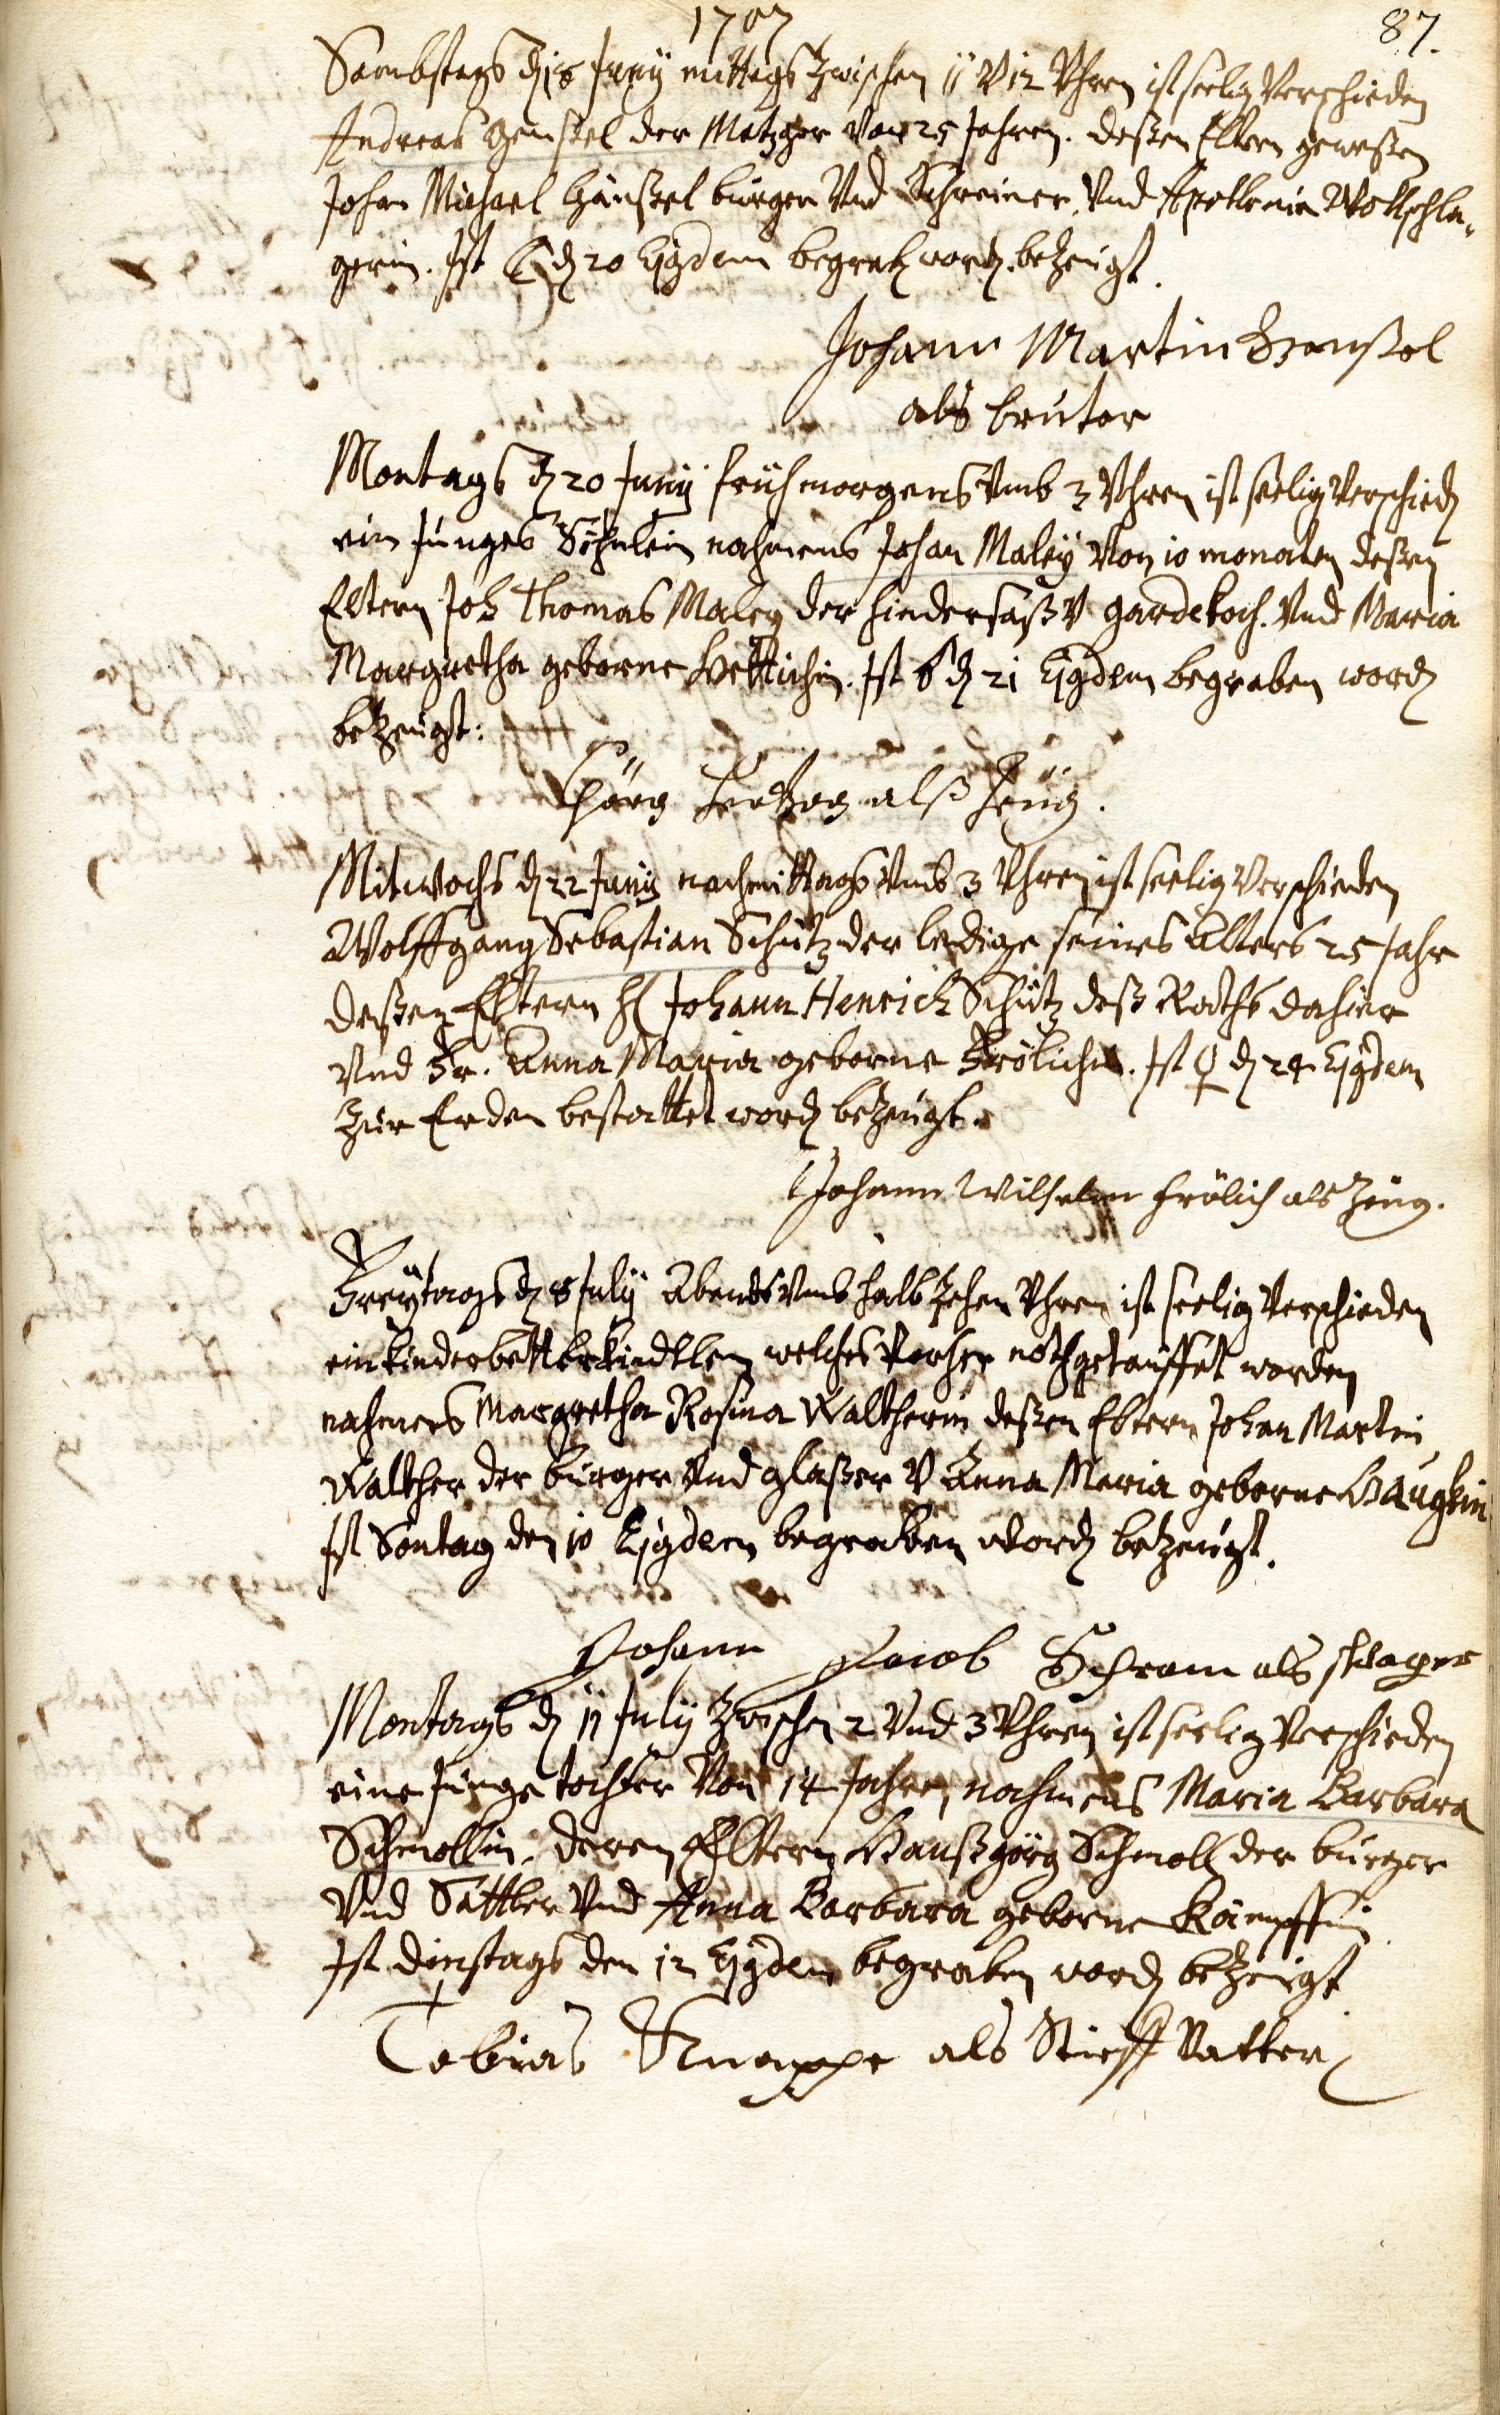 1707
87.
Sambstags dẽ 18 Junÿ mittags zwischen 11 V 12 Uhren ist seelig verschieden
Andreas Henßel der Metzger von 25 Jahren. deßen Eltern geweßen
Johan Michael Hänßel burger Und Schreiner, Und Apollonia Wollschla-
gerin. Ist ☾ dẽ 20 Ejusdem word. bezeugt.
Johann Martin Henßel
als bruter
Montags dẽ 20 Junÿ früh morgens Umb 3 Uhren ist seelig verschied
ein Junges Söhnlein nahmens Johan Maleÿ Von 10 monaten deßen
Eltern Joh Thomas Maley der hindersäß V gardekoch. Und Maria
Margretha geborne Hettichin. Ist dẽ 21 Ejusdem begraben word
bezeugt:
Görg Hertzog alß Zeüg.
Mitwochs dẽ 22 Junÿ nachmittags Umb 3 Uhren ist seelig verschieden
Wolffgang Sebastian Schütz der ledige seines Alters 25 Jahr
deßen Eltern H Johann Henrich Schütz deß Raths dahier
Und Fr. Anna Maria geborne Frölichin. Ist ♀ dẽ 24 Ejusdem
Zur Erden bestattet word bezeugt.
Johann Wilhelm Frölich als Zeug.
Freÿtags dẽ 8 Julÿ Abends Umb halb Zehen Uhren ist seelig verschieden
ein welches Vorher nothgetauffet worden
nahmens Margretha Rosina Waltherin deßen Eltern Johan Martin
Walther der burger Und glaßer V Anna Maria geborne
Ist Sontag den 10 Ejusdem begraben word bezeugt.
Johann Jacob Schram als schwager
Montags dẽ 11 Julÿ zwischen 2 Und 3 Uhren ist seelig verschieden
eine Junge tochter Von 14 Jahren nahmens Maria Barbara
Schmollin. deren Eltern Hanß görg Schmoll der burger
Und Sattler Und Anna Barbara geborne Kämpffin
Ist dinstags den 12 Ejusdem begraben word bezeugt
Tobias Knappe als Stieff Vatter